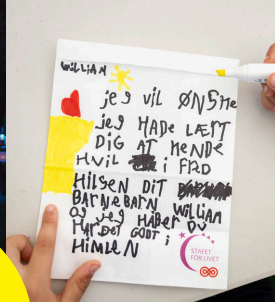 WiLLIAN
jeg ViL ØNSKe
jeg HADe LÆRT
DIG AT KENDE
HVIL i FRD
HILSEN DIT
BARNEBARN William
og jeg HABER DU
HAR DET GODT i
HIMLEN
STAFET
FOR LIVET